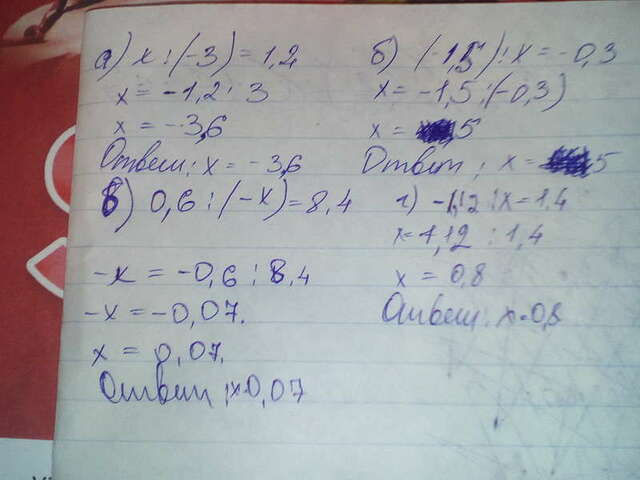 а) x : (-3) = 1,2
x = -1,2 · 3
x = -3,6
Ответ: x = -3,6
б) (-1,5) : x = -0,3
x = -1,5 : (-0,3)
x = 5
Ответ: x = 5
в) 0,6 : (-x) = 8,4
-x = -0,6 : 8,4
-x = -0,07.
x = 0,07.
Ответ: x=0,07
г) -1,12 : x = 1,4
x = 1,12 : 1,4
x = 0,8
Ответ: x=0,8